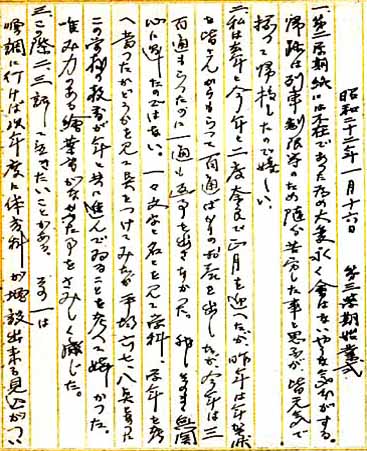 昭和二十二年一月十六日　第三学期始業式
一、第二学期祝には不在であった為め大変永く会はないやうな気がする。
帰路は列車制限等のため随分苦労した事と思ふが皆元気で
揃って帰校したので嬉しい。
二、私は去年と今年と二度奈良で正月を迎へたが、昨年は年賀状
を皆さんからもらって百通ばかりのお返を出したが、今年は三
百通もらったのに一通も返事を出さなかった。
心に過したのではない。一々文字と名とを見て学科・学年を考
へ当ったかどうかを見て点をつけてみたが平均六七、八点であった
この学校の教育が年と共に進んでゐることを考へて嬉しかった。
唯み力のある絵葉書が少なかった事をさみしく感じた。
三、この際二、三話して置きたいことがある。その一は
順調に行けば次年度に体育科が増設出来る見込がつい